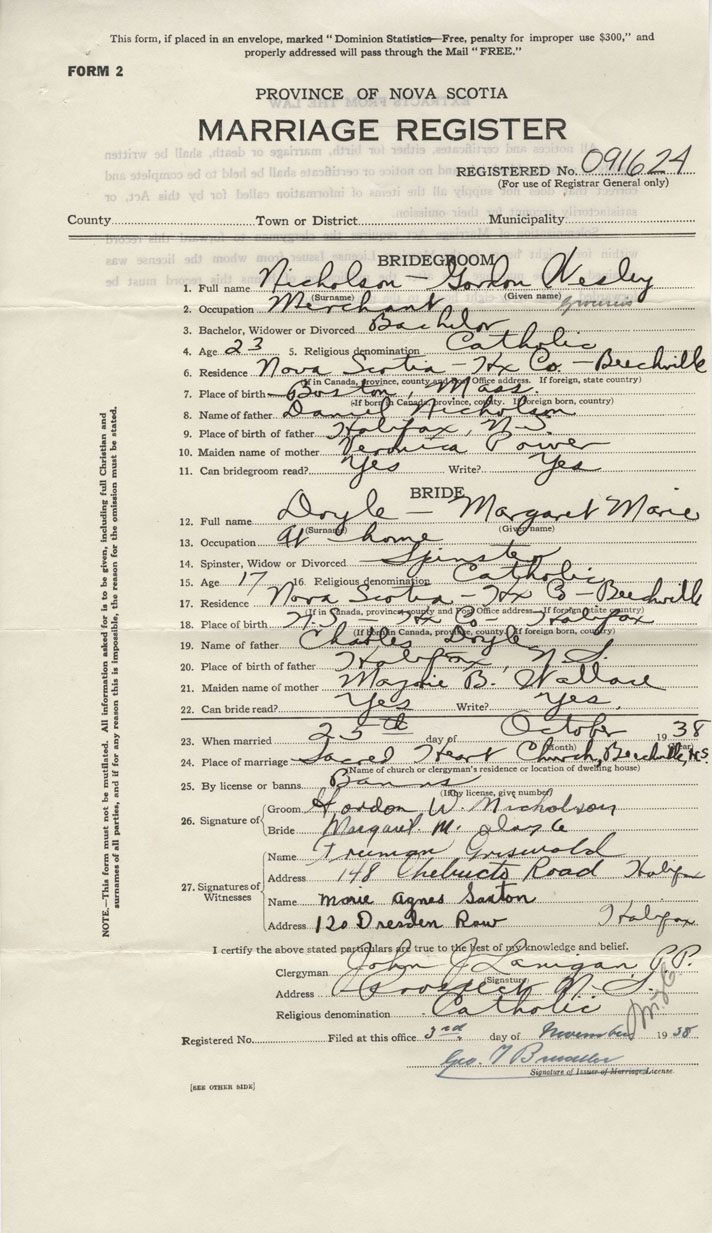 This form, if placed in an envelope, marked "Dominion Statistics—Free, penalty for improper use $300," and
properly addressed will pass through the Mail "FREE."
FORM 2
PROVINCE OF NOVA SCOTIA
MARRIAGE REGISTER
REGISTERED No. 091624
(For use of Registrar General only)
County Town or District Municipality
BRIDEGROOM
1. Full name Nicholson — Gordon Wesley
(Surname) (Given name)
2. Occupation Merchant
3. Bachelor, Widower or Divorced Bachelor
4. Age 23 5. Religious denomination Catholic
6. Residence Nova Scotia - Hx Co. - Beechville
(If in Canada, province, county and Post Office address. If foreign, state country)
7. Place of birth Boston, Mass.
(If born in Canada, province, county. If foreign born, country)
8. Name of father Daniel Nicholson
9. Place of birth of father Halifax, N.S.
10. Maiden name of mother Veronica Power
11. Can bridegroom read? Yes Write? Yes
BRIDE
12. Full name Doyle — Margaret Marie
(Surname) (Given name)
13. Occupation At home
14. Spinster, Widow or Divorced Spinster
15. Age 17 16. Religious denomination Catholic
17. Residence Nova Scotia - Hx Co - Beechville
(If in Canada, province, county and Post Office address. If foreign, state country)
18. Place of birth N.S. - Hx Co - Halifax
(If born in Canada, province, county. If foreign born, country)
19. Name of father Charles Doyle
20. Place of birth of father Halifax, N.S.
21. Maiden name of mother Marjorie B. Wallace
22. Can bride read? Yes Write? Yes.
23. When married 25th day of October 1938
(Month) (Year)
24. Place of marriage Sacred Heart Church, Beechville, N.S.
(Name of church or clergyman's residence or location of dwelling house)
25. By license or banns Banns
(If by license, give number)
26. Signature of Groom Gordon W. Nicholson
Bride Margaret M. Doyle
27. Signatures of Witnesses
Name Truman Griswald
Address 148 Chebucto Road Halifax
Name Marie Agnes Saxton
Address 120 Dresden Row Halifax
I certify the above stated particulars are true to the best of my knowledge and belief.
Clergyman John J Lanigan P.P.
(Signature)
Address Prospect N.S.
Religious denomination Catholic
Registered No. Filed at this office 3rd day of November 1938
Geo.
Signature of Issuer of Marriage License
[SEE OTHER SIDE]
NOTE.—This form must not be mutilated. All information asked for is to be given, including full Christian and
surnames of all parties, and if for any reason this is impossible, the reason for the omission must be stated.